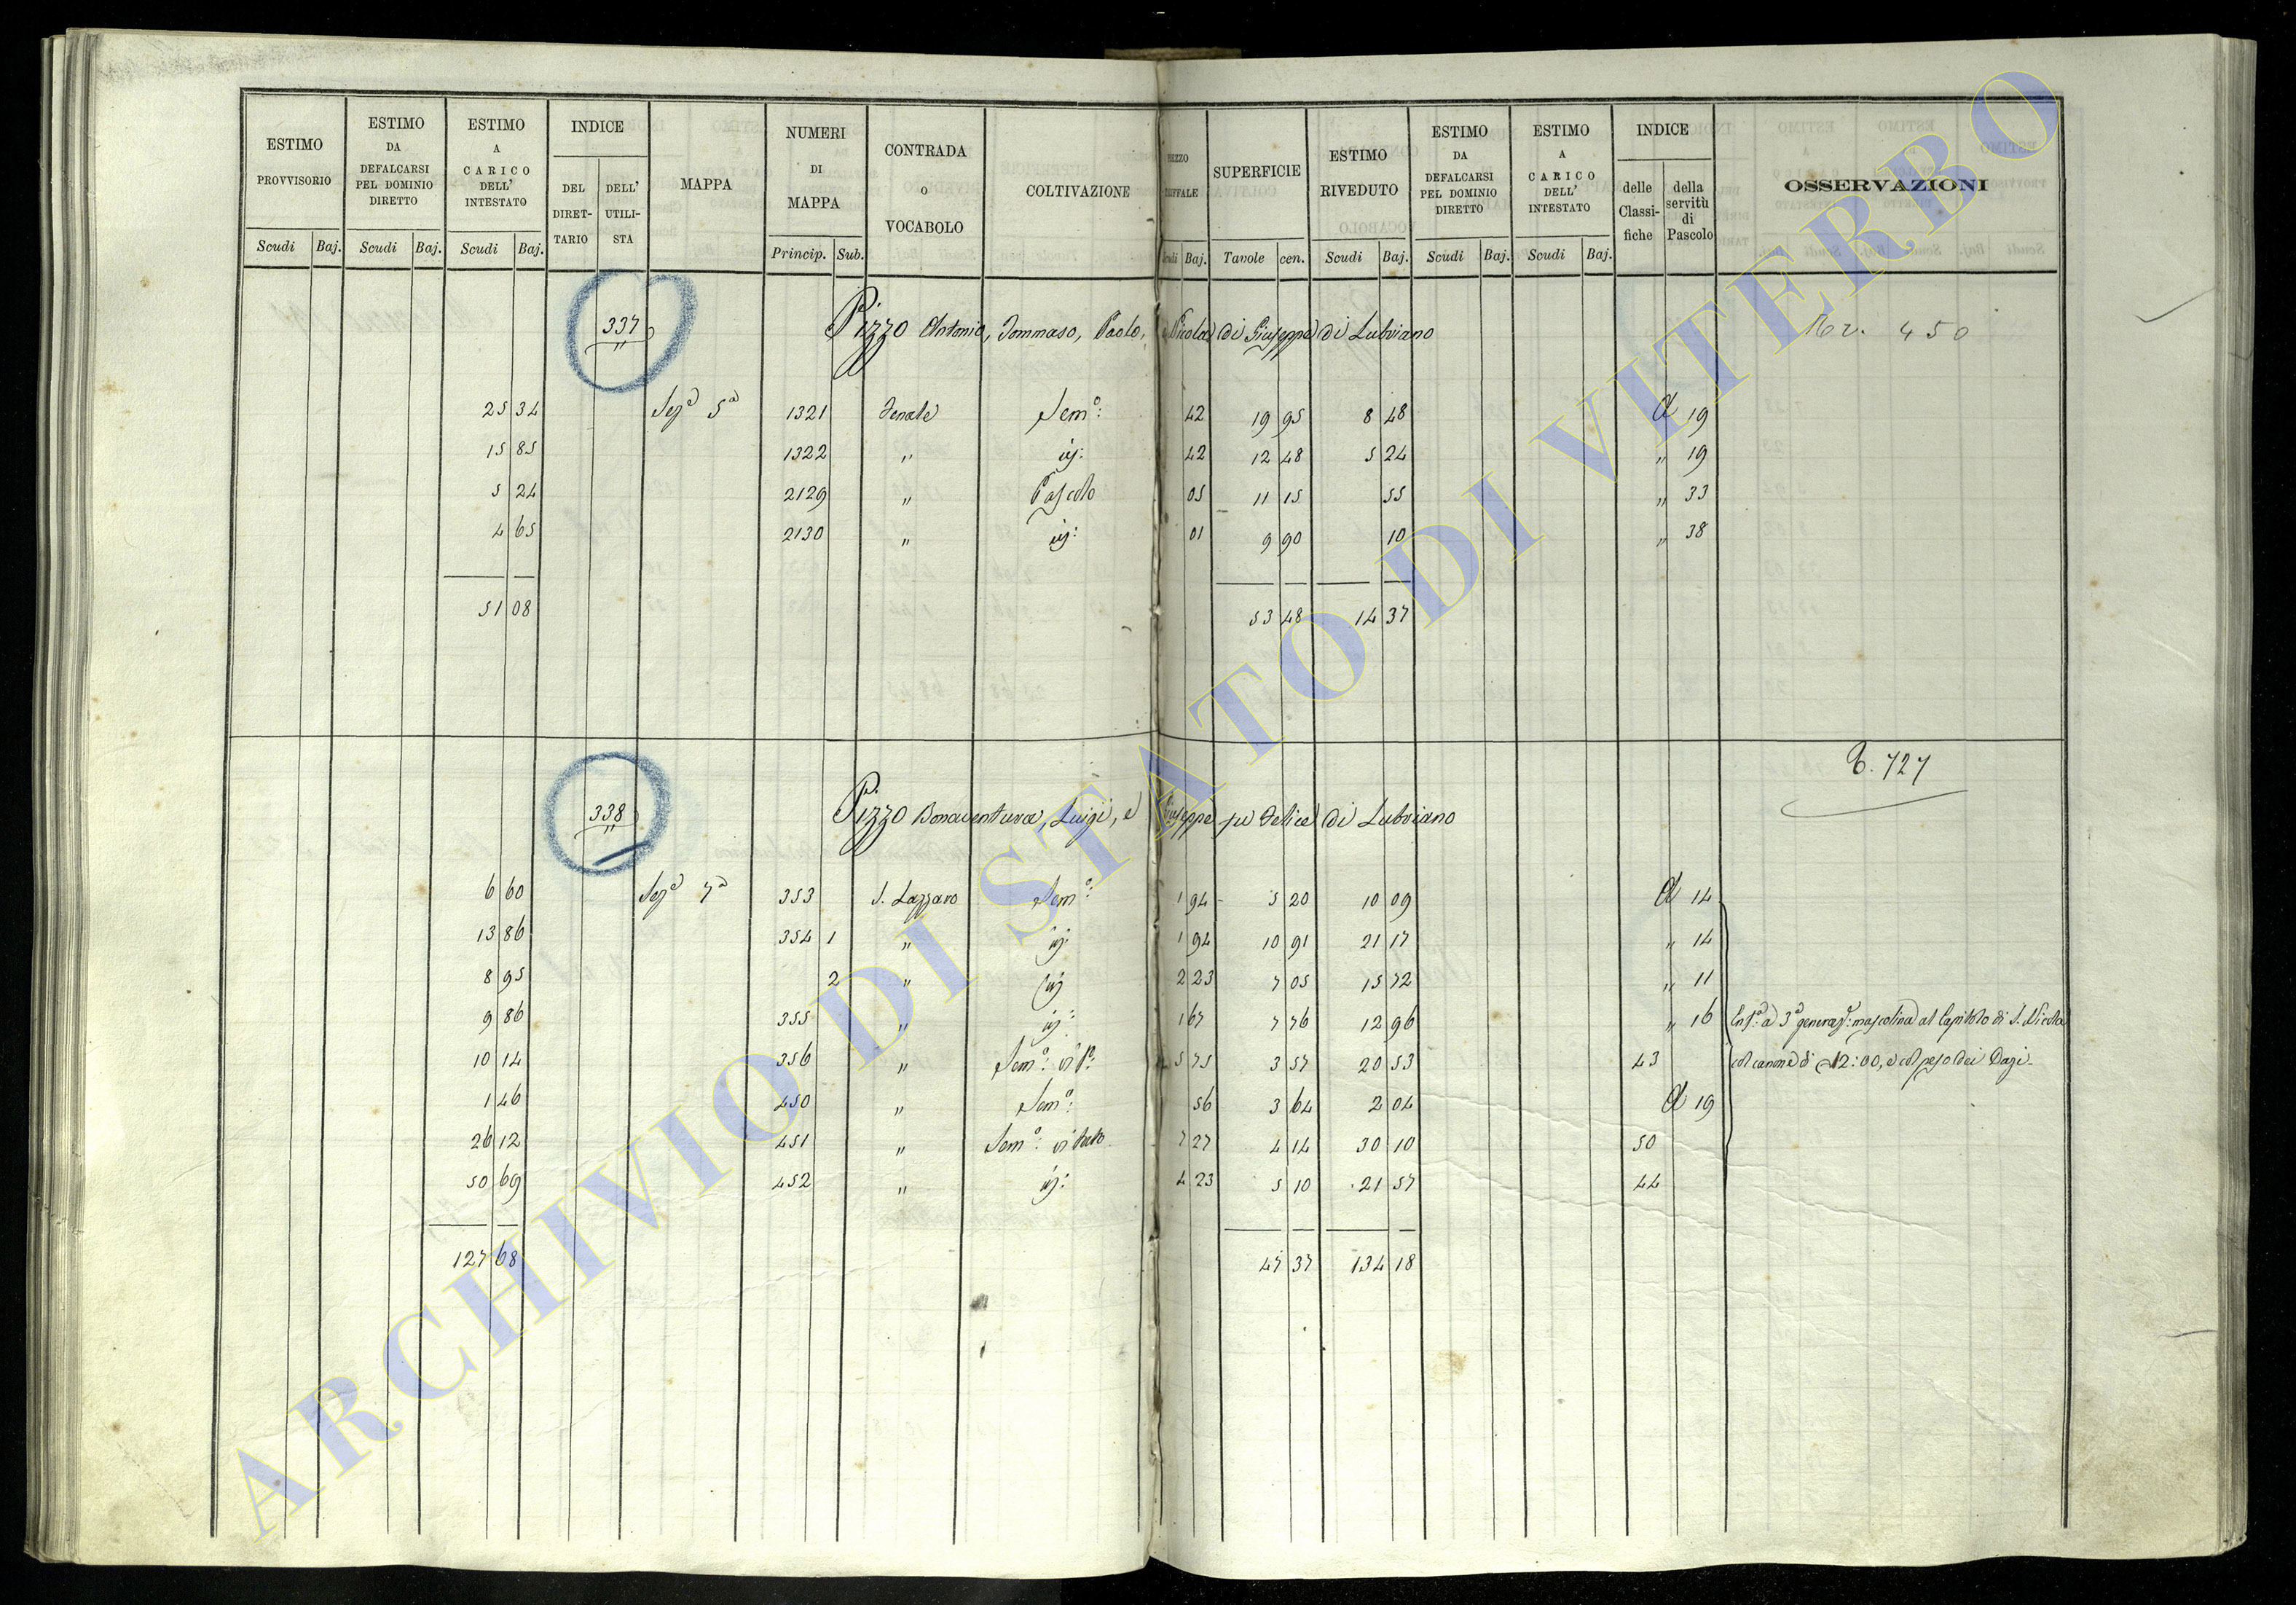 ESTIMO PROVVISORIO | ESTIMO DA DEFALCARSI PEL DOMINIO DIRETTO | ESTIMO A CARICO DELL' INTESTATO | INDICE | MAPPA | NUMERI DI MAPPA | CONTRADA O VOCABOLO | COLTIVAZIONE | SUPERFICIE | ESTIMO RIVEDUTO | ESTIMO DA DEFALCARSI PEL DOMINIO DIRETTO | ESTIMO A CARICO DELL' INTESTATO | INDICE | OSSERVAZIONI
DEL DIRETTARIO | DELL' UTILISTA | delle Classifiche | della servitù di Pascolo
Scudi | Baj. | Scudi | Baj. | Scudi | Baj. | Princip. | Sub. | Baj. | Tavole | cen. | Scudi | Baj. | Scudi | Baj. | Scudi | Baj.
337 Pizzo Antonio, Tommaso, Paolo, Nicola di Giuseppe di Lubriano 450
25 34 Sez.e 5a 1321 Sem.o: 42 19 95 8 48 A 19
15 85 1322 " id: 42 12 48 5 24 " 19
5 24 2129 " Pascolo 05 11 15 55 " 33
4 65 2130 " id: 01 9 90 10 " 38
51 08 53 48 14 37
727
338 Pizzo Bonaventura, Luigi, e Giuseppe qu Felice di Lubriano
6 60 Sez.e 7a 353 S. Lazzaro Sem.o: 1 94 5 20 10 09 A 14
13 86 354 1 " id: 1 94 10 91 21 17 " 14
8 95 2 " id 2 23 7 05 15 72 " 11
9 86 355 " id: 1 67 7 76 12 96 " 16 Enf.a a 3a generaz.e: mascolina al Capitolo di S. Nicola
10 14 356 " Sem.o: vit.o: 5 75 3 57 20 53 43 col canone di 12:00, e col peso dei Dazi.
1 46 450 " Sem.o: 56 3 64 2 04 A 19
26 12 451 " Sem.o: vitato 7 27 4 14 30 10 50
50 69 452 " id: 4 23 5 10 21 57 44
127 68 47 37 134 18
ARCHIVIO DI STATO DI VITERBO